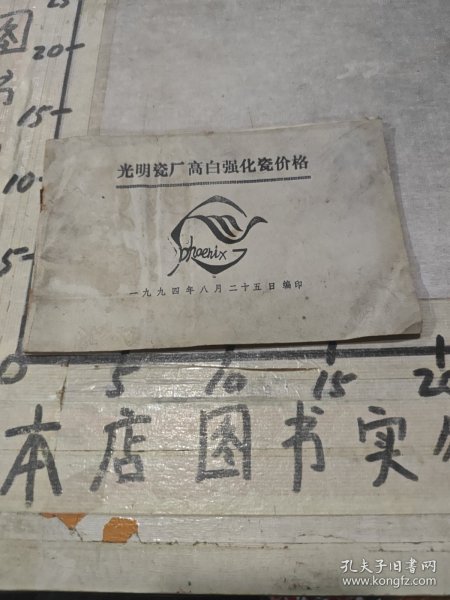 光明瓷厂高白强化瓷价格
phoenix
一九九四年八月二十五日编印
25
20
15
10
5
0
5 10 15 20
图
书
本店图书实
孔夫子旧书网
www.kongfz.com